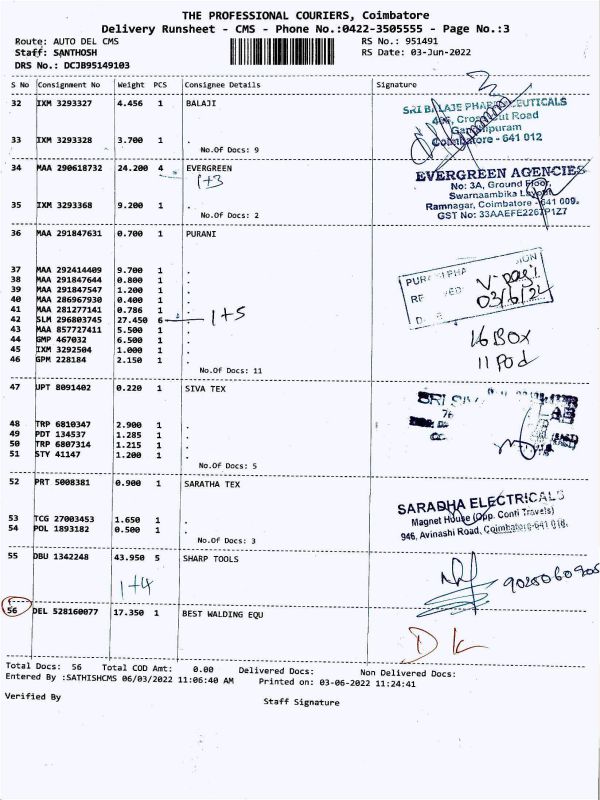 THE PROFESSIONAL COURIERS, Coimbatore
Delivery Runsheet - CMS - Phone No.:0422-3505555 - Page No.:3
Route: AUTO DEL CMS RS No.: 951491
Staff: SANTHOSH RS Date: 03-Jun-2022
DRS No.: DCJB95149103
S No Consignment No Weight PCS Consignee Details Signature
32 IXM 3293327 4.456 1 BALAJI
SRI BALAJE PHARMACEUTICALS
Road
Gandhipuram
Coimbatore - 641 012
33 IXM 3293328 3.700 1 .
No.Of Docs: 9
34 MAA 290618732 24.200 4 EVERGREEN
1+3
EVERGREEN AGENCIES
No: 3A, Ground Floor,
Swarnaambika Layout
Ramnagar, Coimbatore - 641 009.
GST No: 33AAEFE2267P1Z7
35 IXM 3293368 9.200 1 .
No.Of Docs: 2
36 MAA 291847631 0.700 1 PURANI
37 MAA 292414409 9.700 1 .
38 MAA 291847644 0.800 1 .
39 MAA 291847547 1.200 1 .
40 MAA 286967930 0.400 1 .
41 MAA 281277141 0.786 1 .
42 SLM 296803745 27.450 6 . 1+5
43 MAA 857727411 5.500 1 .
44 GMP 467032 6.500 1 .
45 IXM 3292504 1.000 1 .
46 GPM 228184 2.150 1 .
No.Of Docs: 11
03/6/22
16 BOX
11 Pod
47 UPT 8091402 0.220 1 SIVA TEX
SRI
76
48 TRP 6810347 2.900 1 .
49 PDT 134537 1.285 1 .
50 TRP 6807314 1.215 1 .
51 STY 41147 1.200 1 .
No.Of Docs: 5
52 PRT 5008381 0.900 1 SARATHA TEX
SARADHA ELECTRICALS
Magnet House (Opp. Conti Travels)
946, Avinashi Road, Coimbatore-641 018.
53 TCG 27003453 1.650 1 .
54 POL 1893182 0.500 1 .
No.Of Docs: 3
55 DBU 1342248 43.950 5 SHARP TOOLS
1+4
56 DEL 528160077 17.350 1 BEST WALDING EQU
Total Docs: 56 Total COD Amt: 0.00 Delivered Docs: Non Delivered Docs:
Entered By :SATHISHCMS 06/03/2022 11:06:40 AM Printed on: 03-06-2022 11:24:41
Verified By Staff Signature